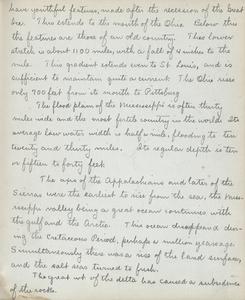 have youthful features, made after the recession of the Great
Ice. This extends to the mouth of the Ohio. Below this
the features are those of an old country. This lower
stretch is about 1100 miles, with a fall of inches to the
mile. This gradient extends even to St. Louis, and is
sufficient to maintain quite a current. The Ohio rises
only 700 feet from its mouth to Pittsburg
The flood plain of the Mississippi is often thirty
miles wide and the most fertile country in the world. Its
average low water width is half a mile, flooding to ten
twenty and thirty miles. Its regular depth is ten
or fifteen to forty feet.
The apes of the Appalachians and later of the
Sierras were the earliest to rise from the sea, the Miss-
issippi valley being a great ocean continuous with
the gulf and the Arctic. This ocean disappeared dur-
ing the Cretaceous Period, perhaps a million years ago.
Simultaneously there was a rise of the land surfaces,
and the salt seas turned to fresh.
The great wt of the delta has caused a subsidence
of the rocks.